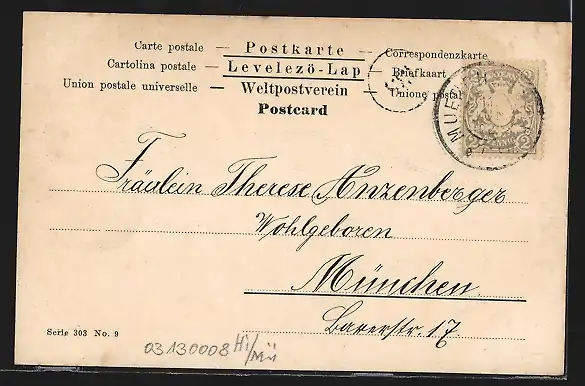 Carte postale — Postkarte — Correspondenzkarte
Cartolina postale — Levelezö-Lap — Briefkaart
Union postale universelle — Weltpostverein — Unione postale
Postcard
MUE
2 2
2 2
Fräulein Therese Anzenberger
Wohlgeboren
München
Barerstr. 17.
Serie 303 No. 9
03130008 Hi/Mü